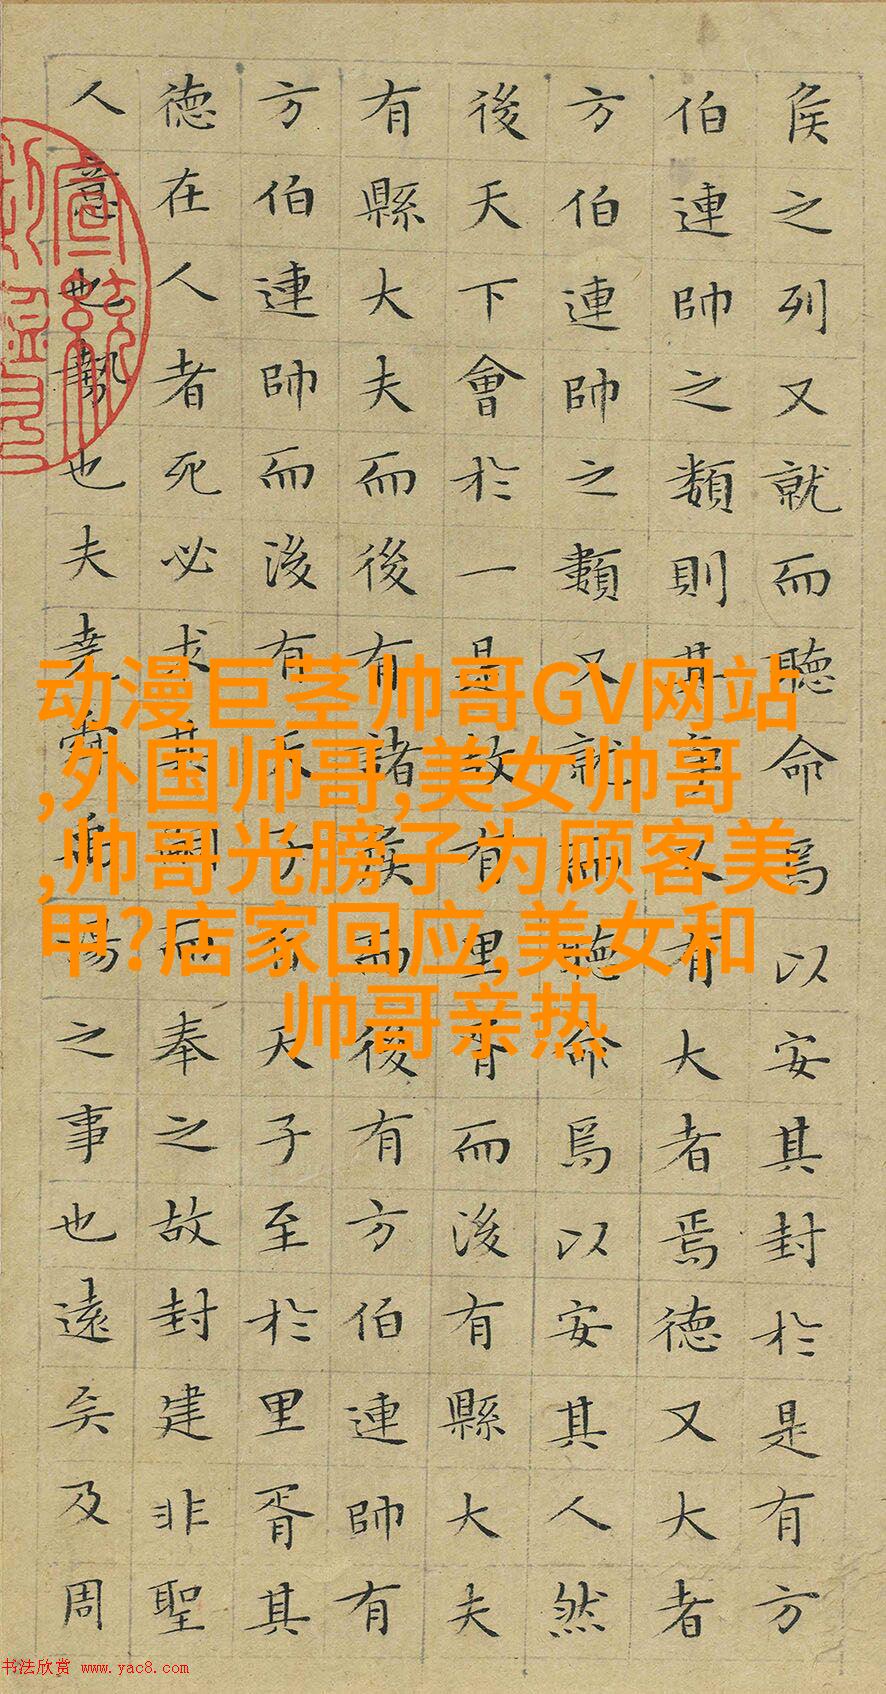 侯之列又就而聽命焉以安其封於是有方
伯連帥之類則其爭又有大者焉德又大者
方伯連帥之類又就而聽命焉以安其人然
後天下會於一是故有里胥而後有縣大夫
有縣大夫而後有諸侯而後有方伯連帥有
方伯連帥而後有天子自天子至於里胥其
德在人者死必求其嗣而奉之故封建非聖
人意也勢也夫堯舜禹湯之事也遠矣及周
动漫巨茎帅哥GV网站
,外国帅哥,美女帅哥
,帅哥光膀子为顾客美
甲?店家回应,美女和
帅哥亲热
书法欣赏 www.yac8.com